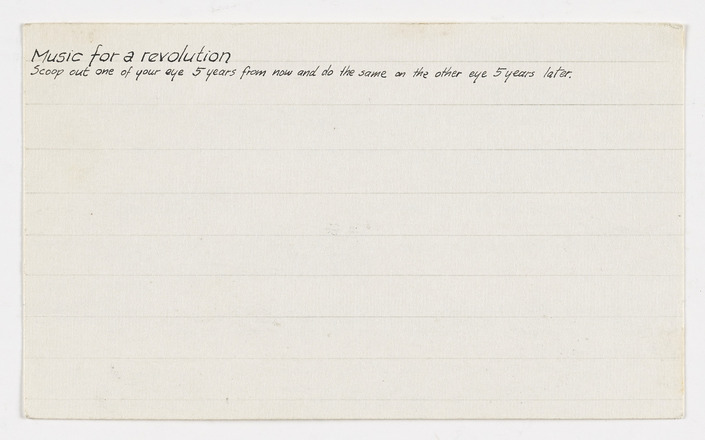 Music for a revolution
Scoop out one of your eye 5 years from now and do the same on the other eye 5 years later.